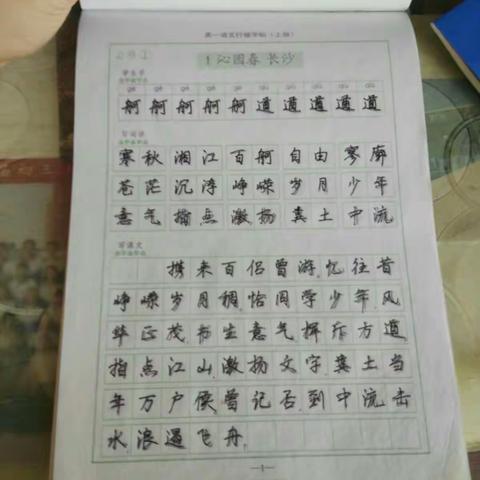 高一语文行楷字帖（上册）
1 沁园春 长沙
写生字
舸 舸 舸 舸 舸 遒 遒 遒 遒 遒
写词语
寒秋 湘江 百舸 自由 寥廓
苍茫 沉浮 峥嵘 岁月 少年
意气 指点 激扬 粪土 中流
写课文
携来百侣曾游,忆往昔
峥嵘岁月稠,恰同学少年,风
华正茂,书生意气,挥斥方遒,
指点江山,激扬文字,粪土当
年万户侯,曾记否,到中流击
水,浪遏飞舟,
—1—